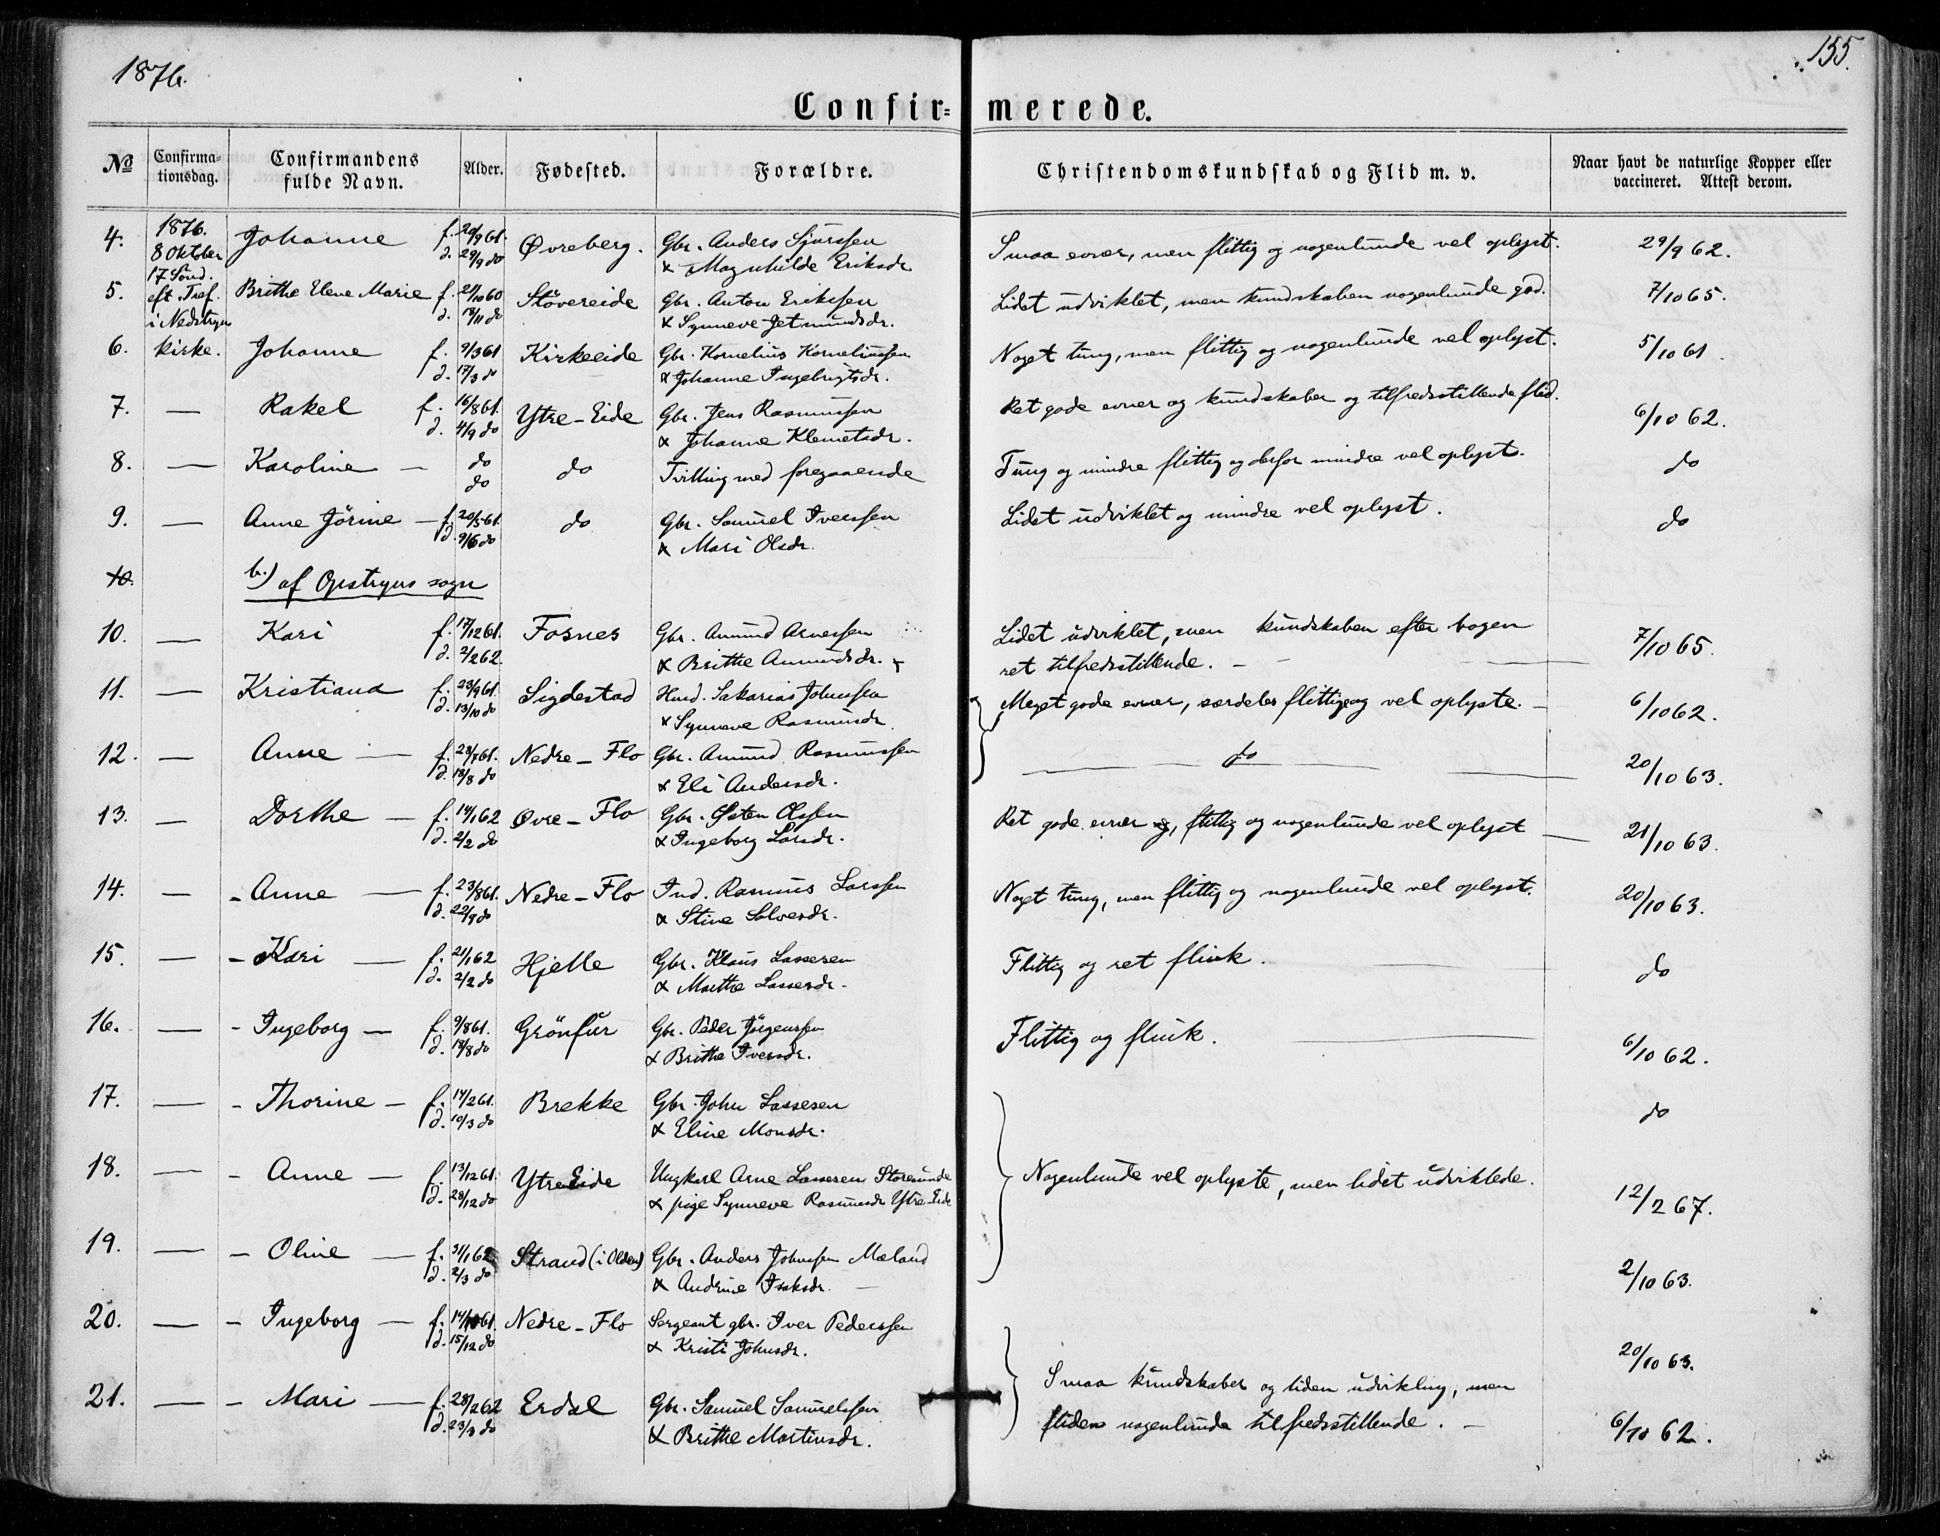 1876.
155.
Confir= merede.
№ Confirmationsdag. Confirmandens fulde Navn. Alder. Fødested. Forældre. Christendomskundskab og Flid m. v. Naar havt de naturlige Kopper eller vaccineret. Attest derom.
4. 1876. 8 Oktober Johanne f. 20/9 61. Øvreberg. Gbr. Anders Sjurssen Smaa evner, men flittig og nogenlunde vel oplyst. 29/9 62.
17 Sönd. d. 29/9 do & Magnhilde Eriksdr.
5. eft. Tref. Brithe Elene Marie f. 21/10 60 Störeide Gbr. Anton Erikssen Lidet udviklet, men kundskaben nogenlunde god. 7/10 65.
i Nedstryns d. 18/11 do & Synneve Jetmundsdr.
6. kirke. Johanne f. 9/3 61 Kirkeeide Gbr. Kornelius Korneliussen Noget tung, men flittig og nogenlunde vel oplyst. 5/10 61.
d. 17/3 do & Johanne Ingebrigtsdr.
7. — Rakel f. 16/8 61. Ytre-Eide Gbr. Jens Rasmussen Ret gode evner og kundskaber og tilfredsstillende flid. 6/10 62.
d. 4/9 do & Johanne Klemetsdr.
8. — Karoline — do do Tvilling med foregaaende Tung og mindre flittig og derfor mindre vel oplyst. do
do
9. — Anne Jörine — f. 20/5 61. do Gbr. Samuel Iverssen Lidet udviklet og mindre vel oplyst. do
d. 9/6 do & Mari Olsdr.
10. b.) af Opstryns sogn
10. — Kari f. 17/12 61. Fosnes Gbr. Amund Arnessen Lidet udviklet, men kundskaben efter bogen 7/10 65.
d. 2/2 62. & Brithe Amundsdr. ret tilfredsstillende. —
11. — Kristiana f. 23/9 61. Sigdestad Hmd. Sakarias Johnssen Meget gode evner, særdeles flittige og vel oplyste. — 6/10 62.
d. 13/10 do & Synneve Rasmusdr.
12. — Anne — f. 23/7 61. Nedre-Flo Gbr. Amund Rasmussen do 20/10 63.
d. 18/8 do & Eli Andersdr.
13. — Dorthe — f. 14/1 62 Øvre-Flo Gbr. Østen Olssen Ret gode evner og, flittig og nogenlunde vel oplyst — 21/10 63.
d. 2/2 do & Ingeborg Larsdr.
14. — - Anne — f. 23/8 61. Nedre-Flo Ind. Rasmus Larssen Noget tung, men flittig og nogenlunde vel oplyst. 20/10 63.
d. 22/9 do & Stine Salvesdr.
15. — - Kari — f. 21/1 62 Hjelle Gbr. Klaus Lassesen Flittig og ret flink. do
d. 2/2 do & Marthe Lassesdr.
16. — - Ingeborg — f. 9/8 61. Grönfur Gbr. Peder Jörgenssen Flittig og flink. 6/10 62.
d. 18/8 do & Brithe Iversdr.
17. — - Thorine — f. 14/2 61. Brekke Gbr. John Lassesen do
d. 10/3 do & Eline Monsdr.
18. — - Anne — f. 13/12 61. Ytre Eide Ungkarl Arne Lassesen Storesunde Nogenlunde vel oplyste, men lidet udviklede. 12/2 67.
d. 28/12 do & pige Synneve Rasmusdr Ytre-Eide
19. — - Oline — f. 31/1 62 Strand (i Olden) Gbr. Anders Johnssen Mæland 2/10 63.
d. 2/3 do & Andrine Isaksdr. —
20. — - Ingeborg — f. 14/10 61. Nedre-Flo Sergeant gbr. Iver Pederssen 20/10 63.
d. 15/12 do & Kristi Johnsdr.
21. — - Mari — f. 28/2 62 Erdal Gbr. Samuel Samuelssen Smaa kundskaber og liden udvikling, men
d. 23/3 do & Brithe Martinsdr. fliden nogenlunde tilfredsstillende. — 6/10 62.